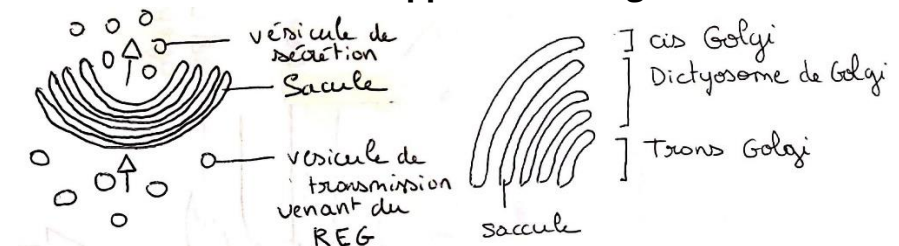 vésicule de
sécrétion
Sacule
vesicule de
transmission
venant du
REG
cis Golgi
Dictyosome de Golgi
Trans Golgi
saccule